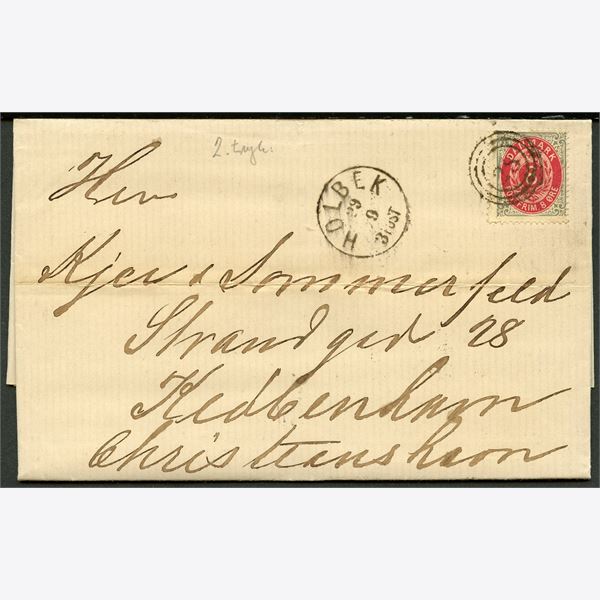 2. tryk.
HOLBEK
29
9
3 POST
DANMARK
8
POSTFRIM. 8 ØRE
Herr
Kjær & Sommerfeld
Strandgad 28
Kedbenhavn
Christianshavn